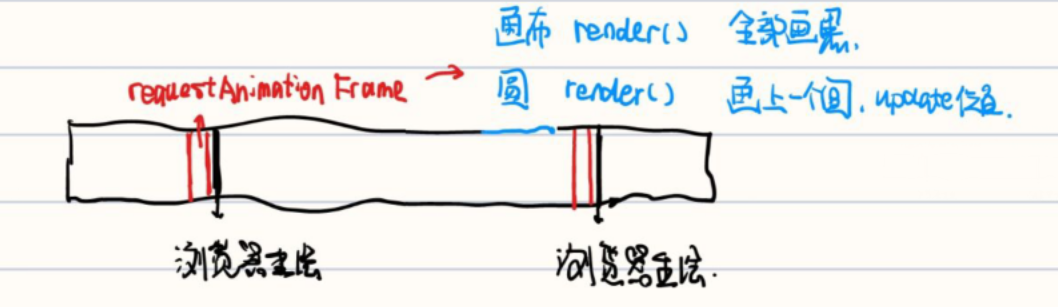 画布 render() 全部画黑.
requestAnimation Frame → 圆 render() 画上一个圆. update位置.
浏览器重绘 浏览器重绘.